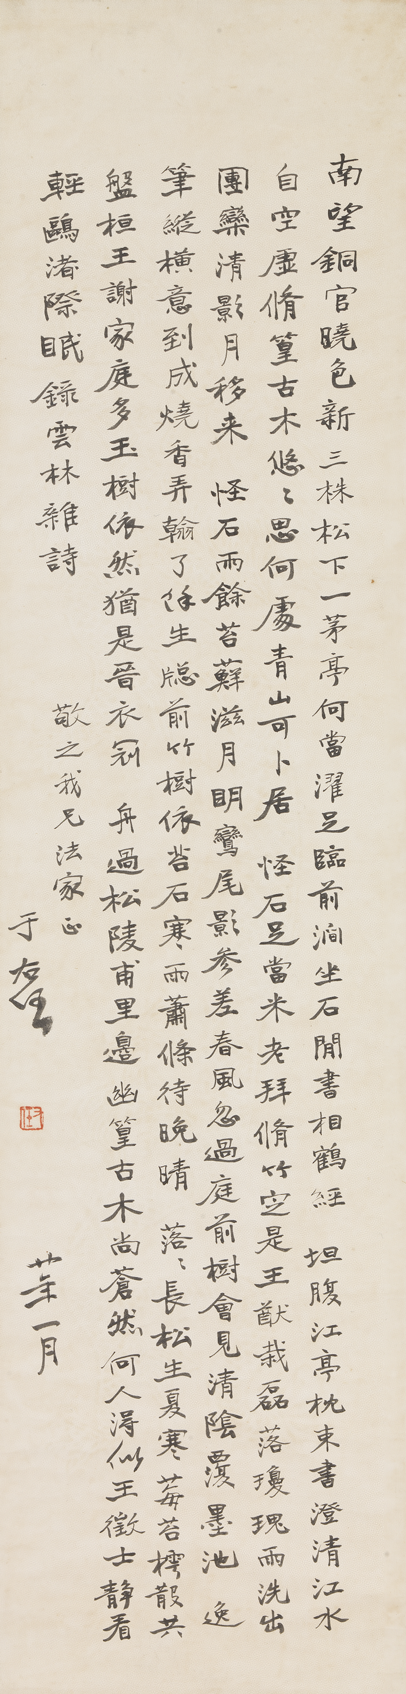 南望銅官曉色新三株松下一茅亭何當濯足臨前澗坐石閒書相鶴經 坦腹江亭枕束書澄清江水
自空虛脩篁古木悠〻思何處青山可卜居 怪石足當米老拜脩竹定是王猷栽磊落瓊瑰雨洗出
團欒清影月移来 怪石雨餘苔蘚滋月明鸞尾影參差春風忽過庭前樹會見清陰覆墨池 逸
筆縱横意到成燒香弄翰了餘生窓前竹樹依苔石寒雨蕭條待晚晴 落〻長松生夏寒莓苔樗散共
盤桓王謝家庭多玉樹依然猶是晉衣冠 舟過松陵甫里邊幽篁古木尚蒼然何人得似王徵士靜看
輕鷗渚際眠 錄雲林雜詩
敬之我兄法家正
于右任
廿年一月